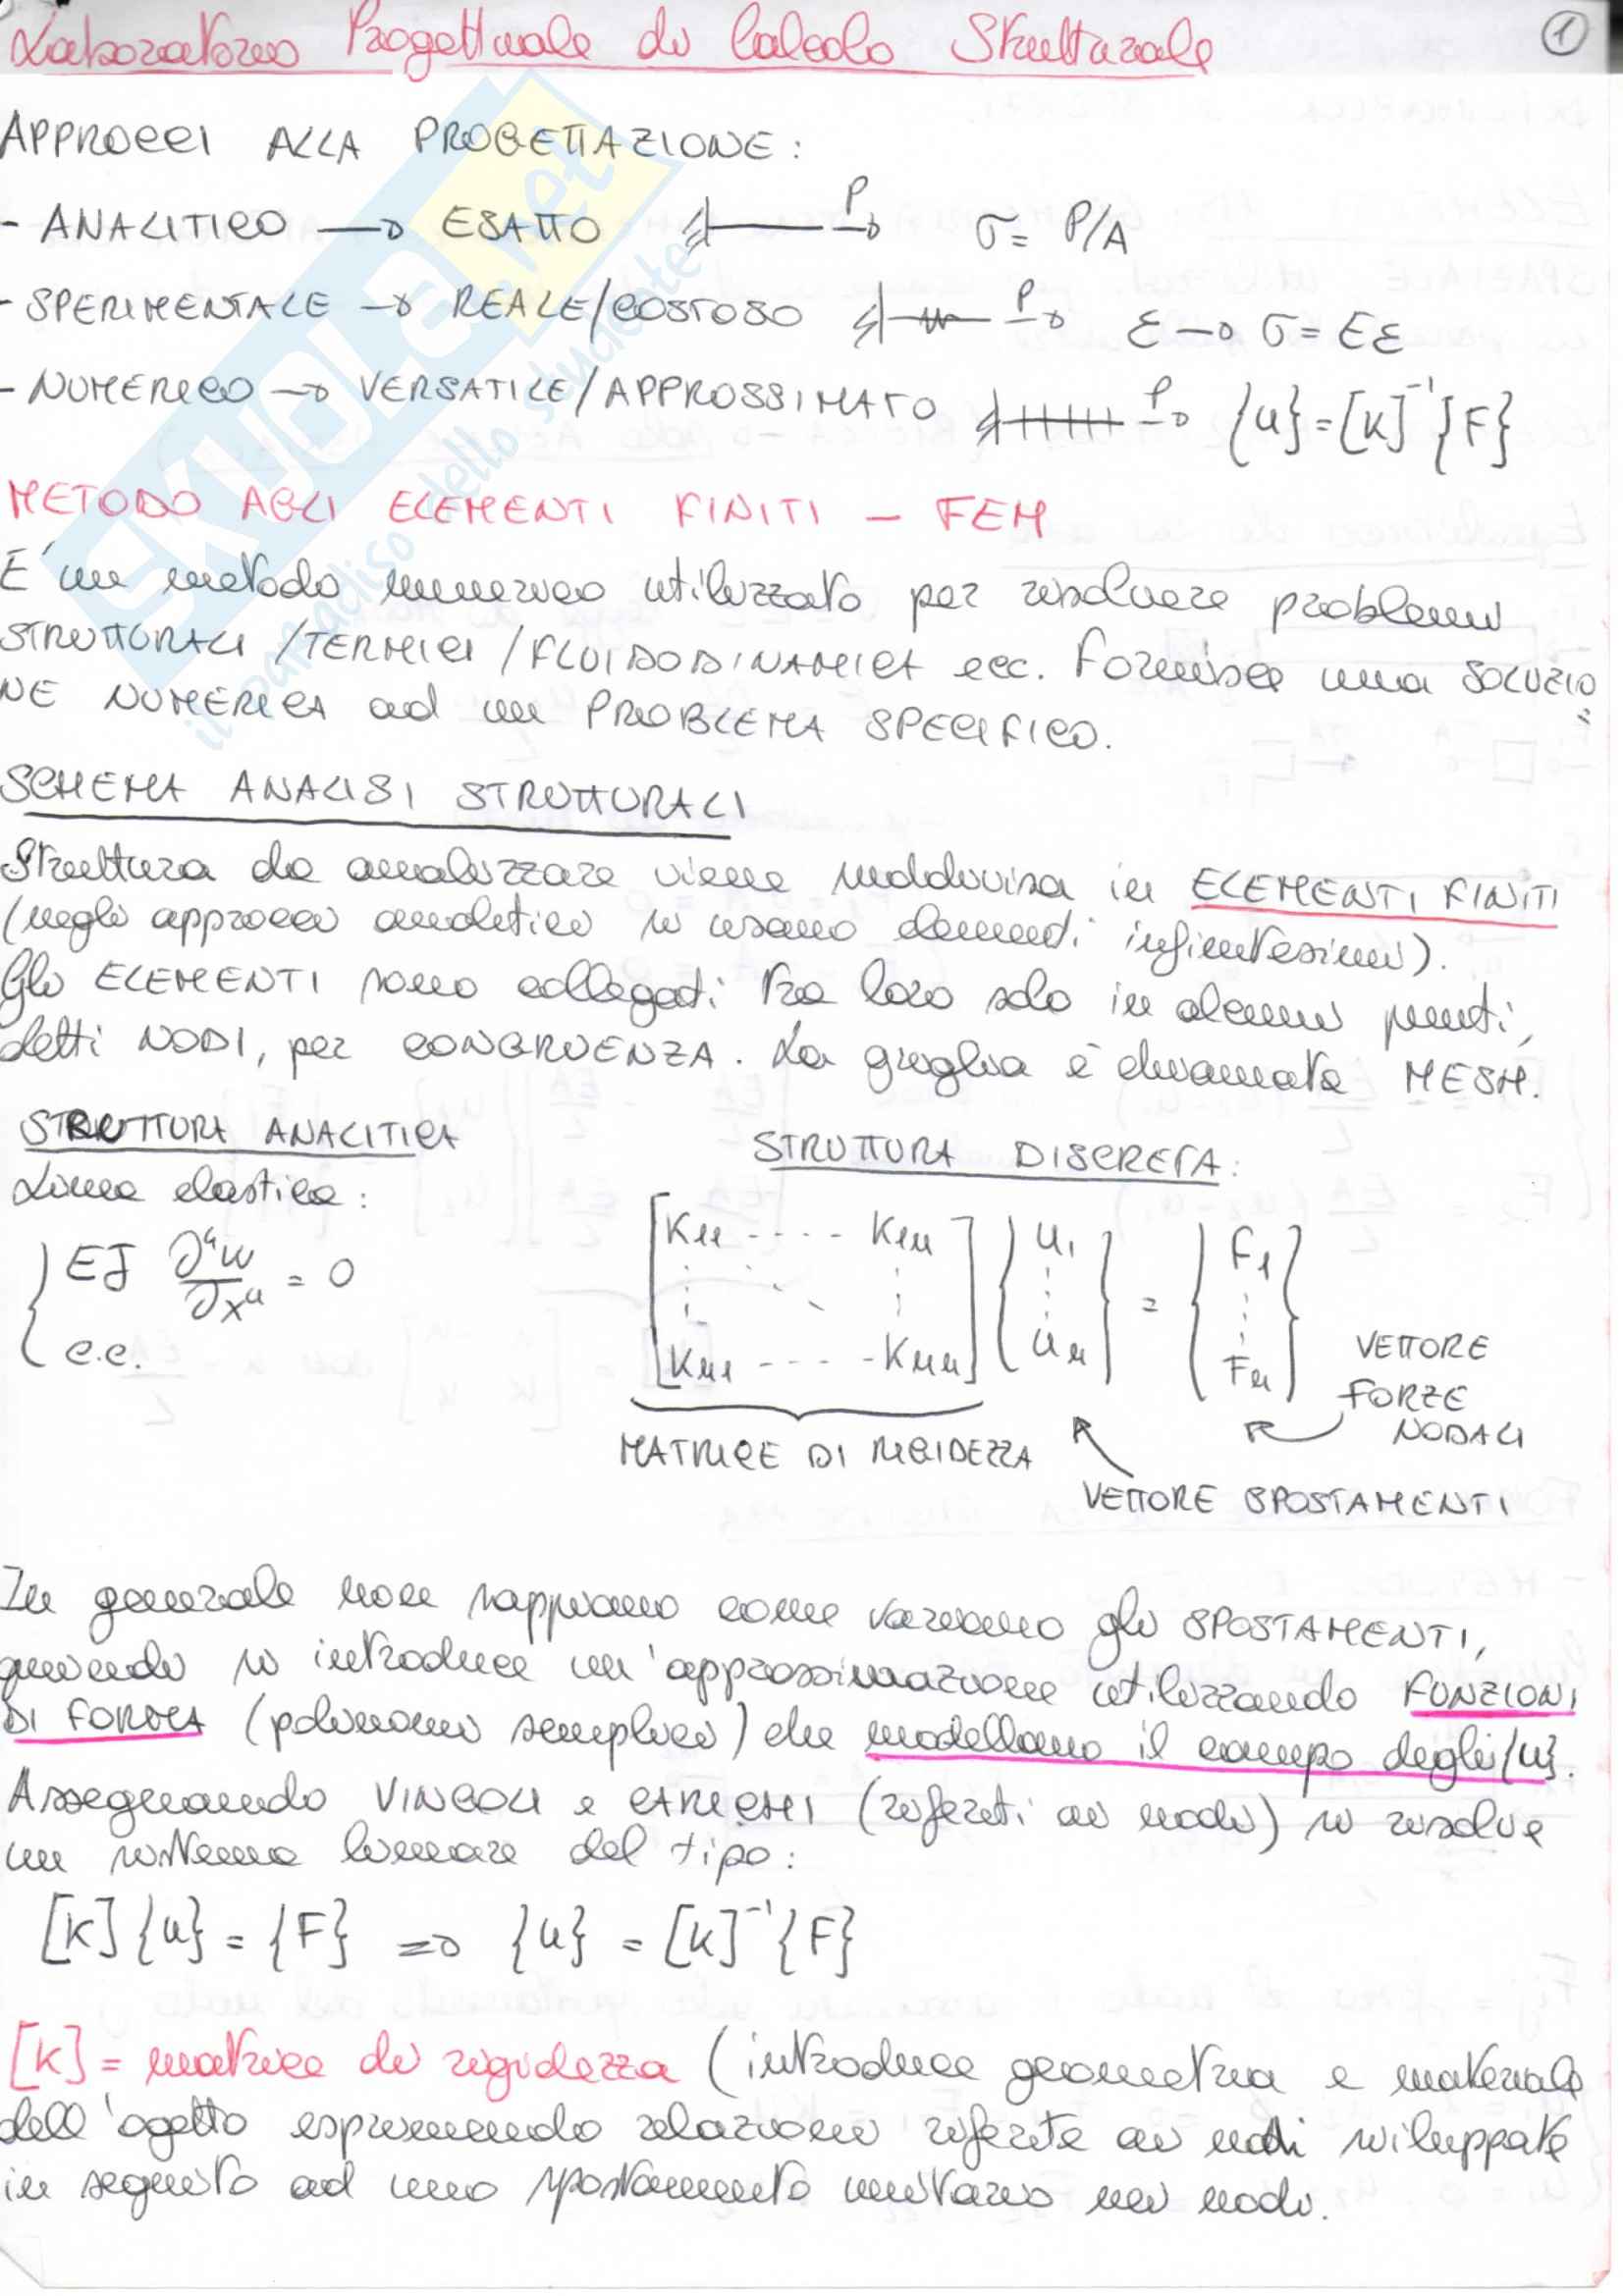 Laboratorio Progettuale di Calcolo Strutturale 1
APPROCCI ALLA PROGETTAZIONE:
- ANALITICO → ESATTO P σ = P/A
- SPERIMENTALE → REALE/COSTOSO P ε → σ = Eε
- NUMERICO → VERSATILE/APPROSSIMATO P {u} = [K]⁻¹ {F}
METODO AGLI ELEMENTI FINITI - FEM
E' un metodo numerico utilizzato per risolvere problemi
STRUTTURALI /TERMICI /FLUIDODINAMICA ecc. Fornisce una SOLUZIO
NE NUMERICA ad un PROBLEMA SPECIFICO.
SCHEMA ANALISI STRUTTURALI
Struttura da analizzare viene suddivisa in ELEMENTI FINITI
(negli approcci analitici si usano elementi infinitesimi).
Gli ELEMENTI sono collegati tra loro solo in alcuni punti,
detti NODI, per CONGRUENZA. La griglia è chiamata MESH.
STRUTTURA ANALITICA
Linea elastica:
{ EJ ∂⁴w/∂x⁴ = 0
c.c.
STRUTTURA DISCRETA:
[K11 ---- K1n] {u1} = {F1}
[Kn1 ---- Knn] {un} {Fn}
MATRICE DI RIGIDEZZA
VETTORE SPOSTAMENTI
VETTORE
FORZE
NODALI
In generale non sappiamo come variano gli SPOSTAMENTI,
quindi si introduce un'approssimazione utilizzando FUNZIONI
DI FORMA (polinomi semplici) che modellano il campo degli {u}.
Assegnando VINCOLI e CARICHI (riferiti ai nodi) si risolve
un sistema lineare del tipo:
[K] {u} = {F} ⇒ {u} = [K]⁻¹ {F}
[K] = matrice di rigidezza (introduce geometria e materiale
dell'ogetto esprimendo relazioni riferite ai nodi sviluppate
in seguito ad uno spostamento unitario nei nodi.
SKUOLA.net
il paradiso dello studente